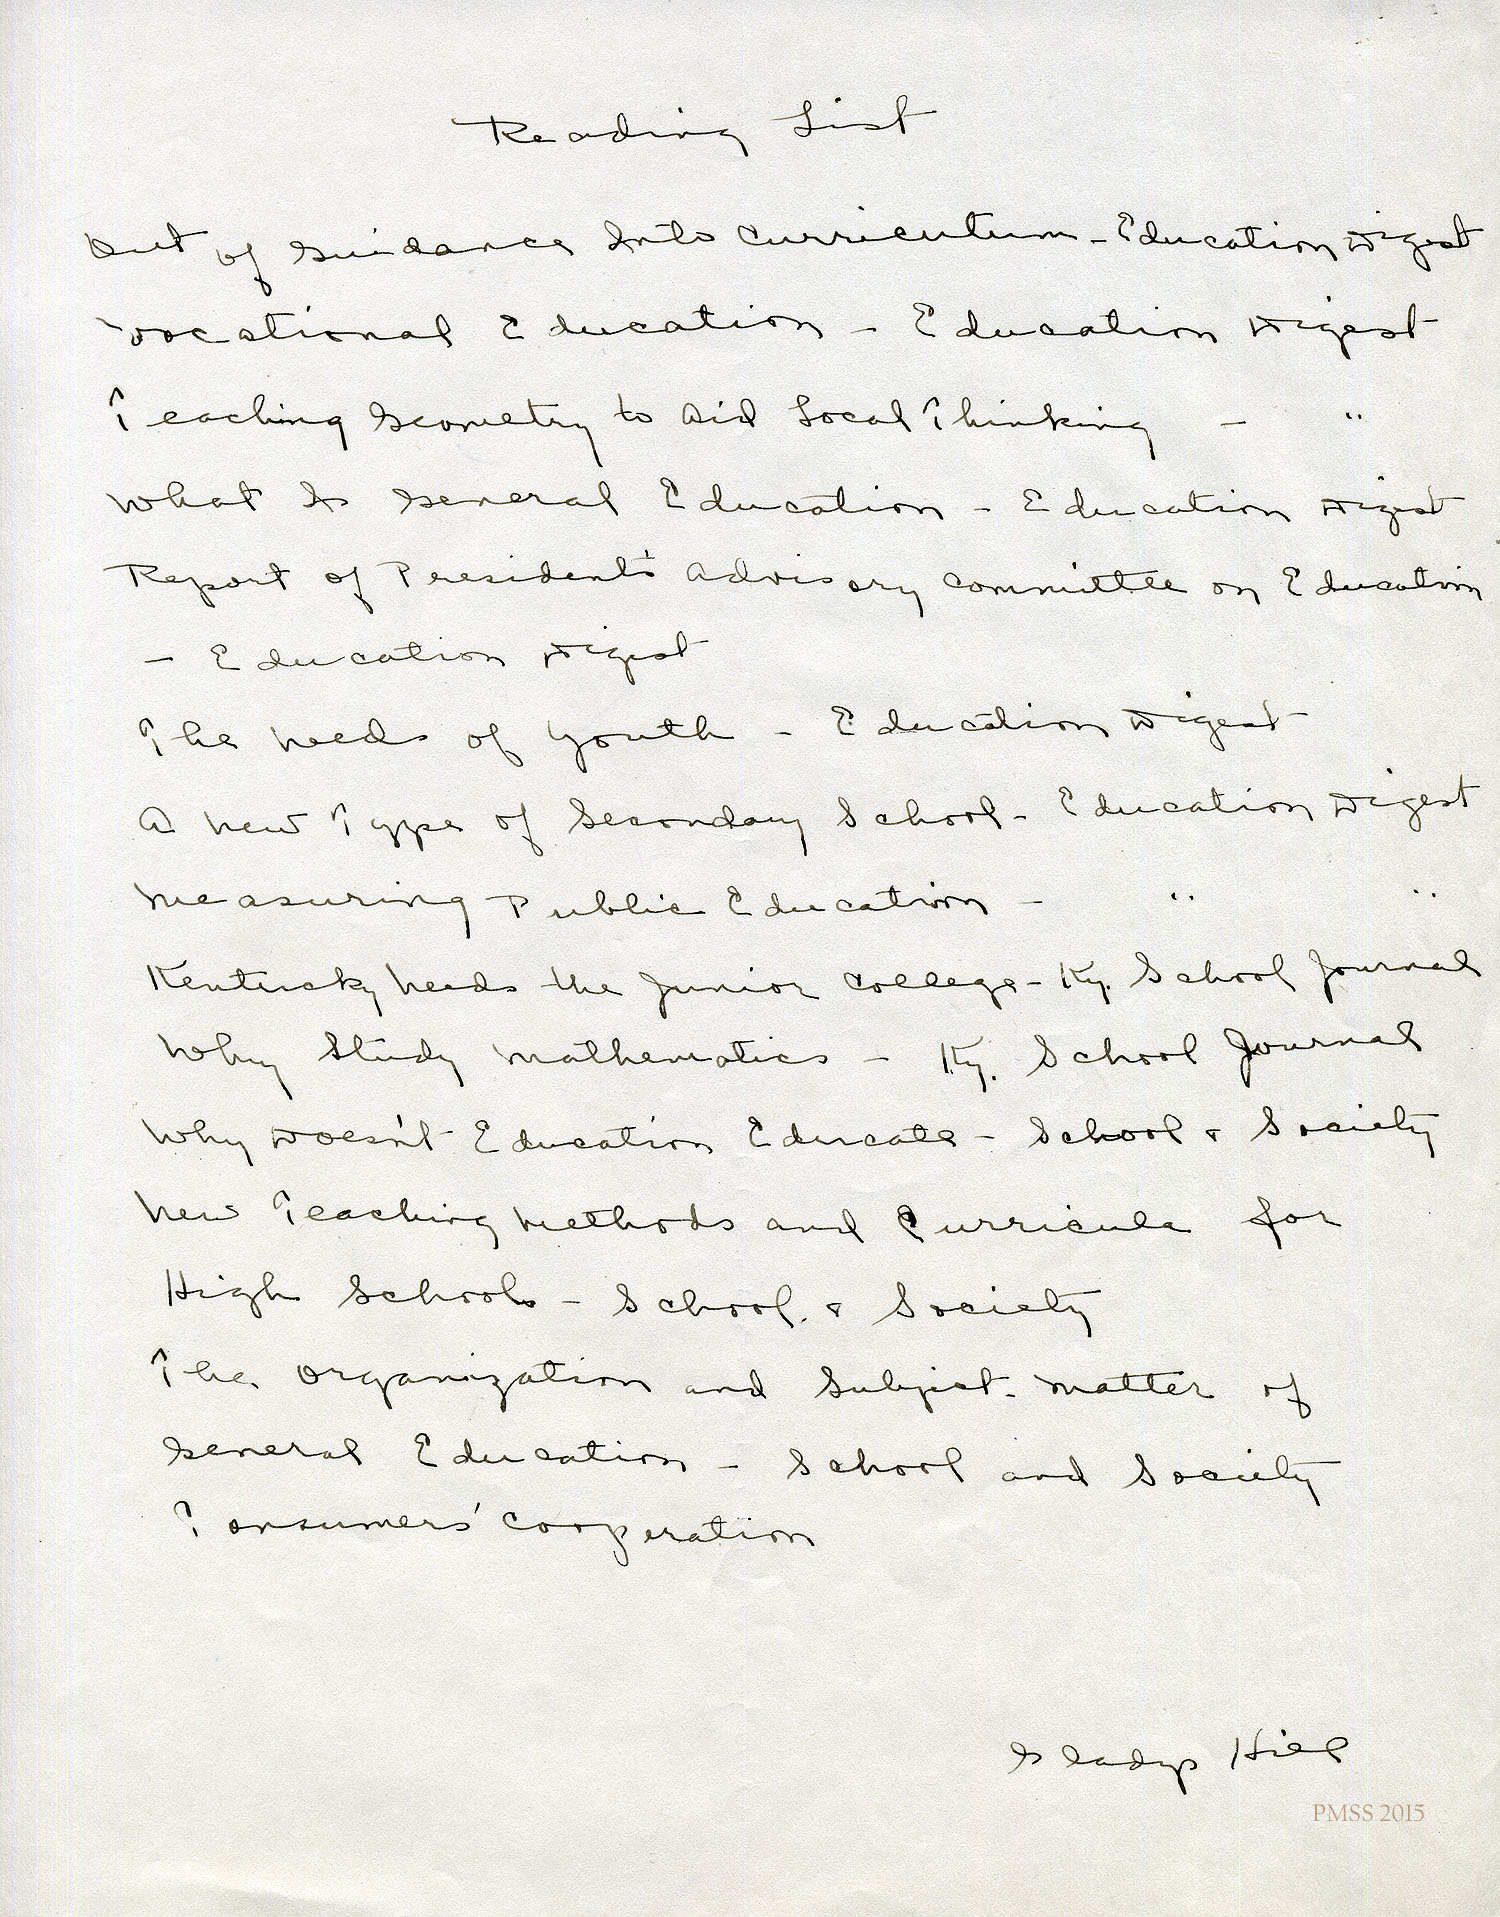 Reading List
Out of Guidance Into Curriculum - Education Digest
Vocational Education - Education Digest
Teaching Geometry to Aid Local Thinking - "
What Is General Education - Education Digest
Report of President's Advisory Committee on Education
- Education Digest
The Needs of Youth - Education Digest
A New Type of Secondary School - Education Digest
Measuring Public Education - " "
Kentucky Needs the Junior College - Ky. School Journal
Why Study Mathematics - Ky. School Journal
Why Doesn't Education Educate - School & Society
New Teaching Methods and Curricula for
High Schools - School & Society
The Organization and Subject-Matter of
General Education - School and Society
Consumers' Cooperation
Gladys Hill
PMSS 2015